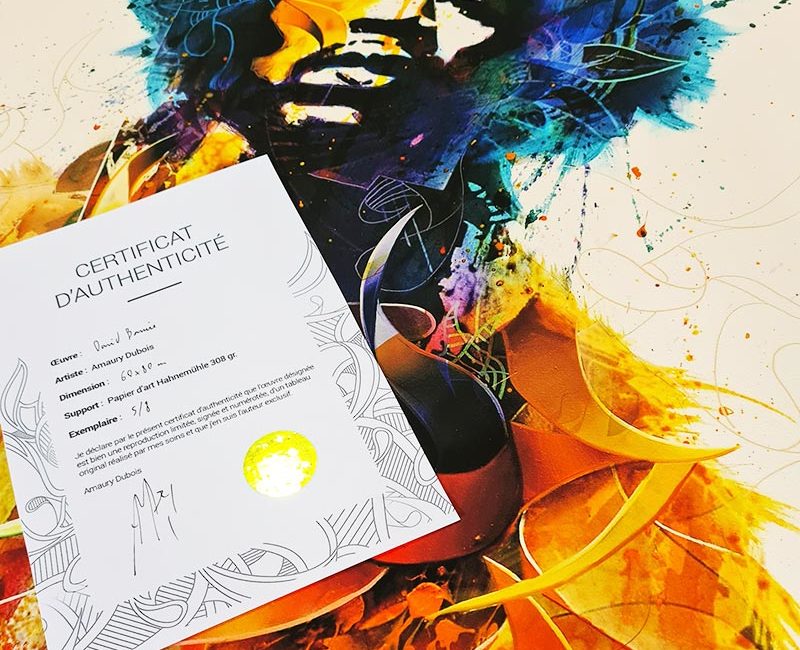 CERTIFICAT
D'AUTHENTICITÉ
Œuvre : David
Artiste : Amaury Dubois
Dimension : 60x80
Support : Papier d'art Hahnemühle 308 gr.
Exemplaire : 5/8
Je déclare par le présent certificat d'authenticité que l'œuvre désignée
est bien une reproduction limitée, signée et numérotée, d'un tableau
original réalisé par mes soins et que j'en suis l'auteur exclusif.
Amaury Dubois